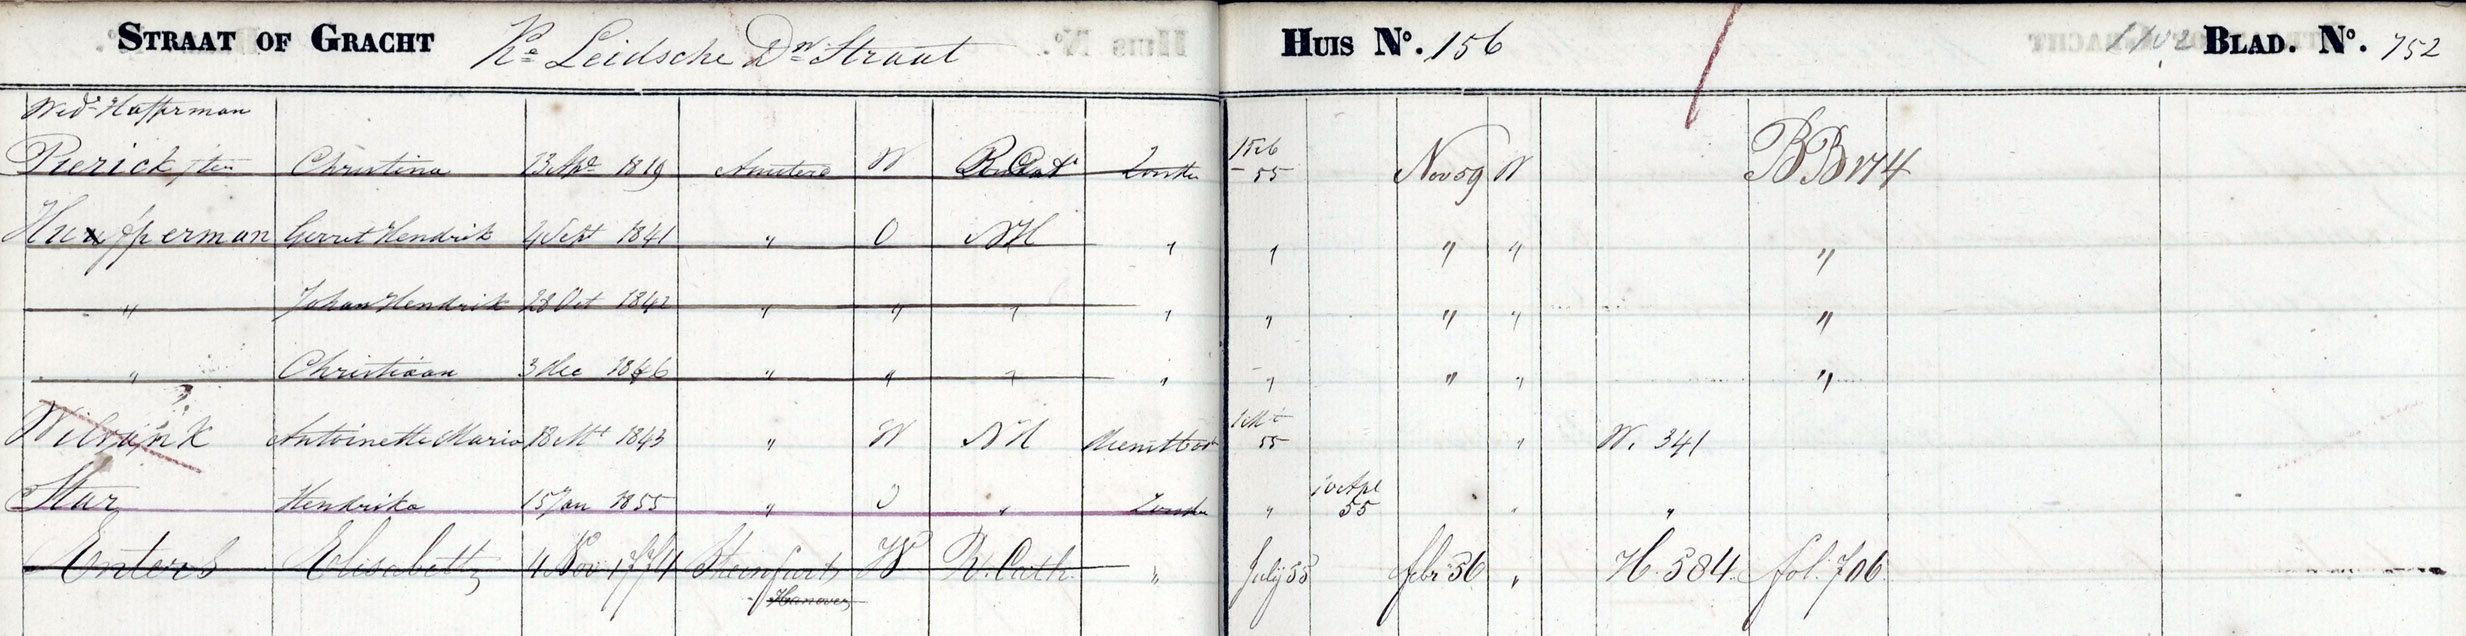 STRAAT OF GRACHT Ke Leidsche Dw Straat HUIS No. 156 BLAD. No. 752
Wede Hupperman
Pierick, ten Christina 13 Apr 1819 Amsterd W R Cath Zonder 1 Feb 55 Nov 59 W BB 174
Hupperman Gerret Hendrik 4 Sept 1841 " O NH " " " " "
" Johan Hendrik 28 Oct 1842 " " " " " " " "
" Christiaan 3 Dec 1846 " " " " " " " "
Wilmink Antoinette Maria 18 Mt 1843 " W NH 1 Mt 55 " W. 341
Star Hendrika 15 Jan 1855 " O " Zonder " 10 Apl 55 " "
Enters Elisabeth 4 Nov 1774 Steinfurt W R. Cath. " July 55 febr 56 " H. 584 fol. 706
Hanover